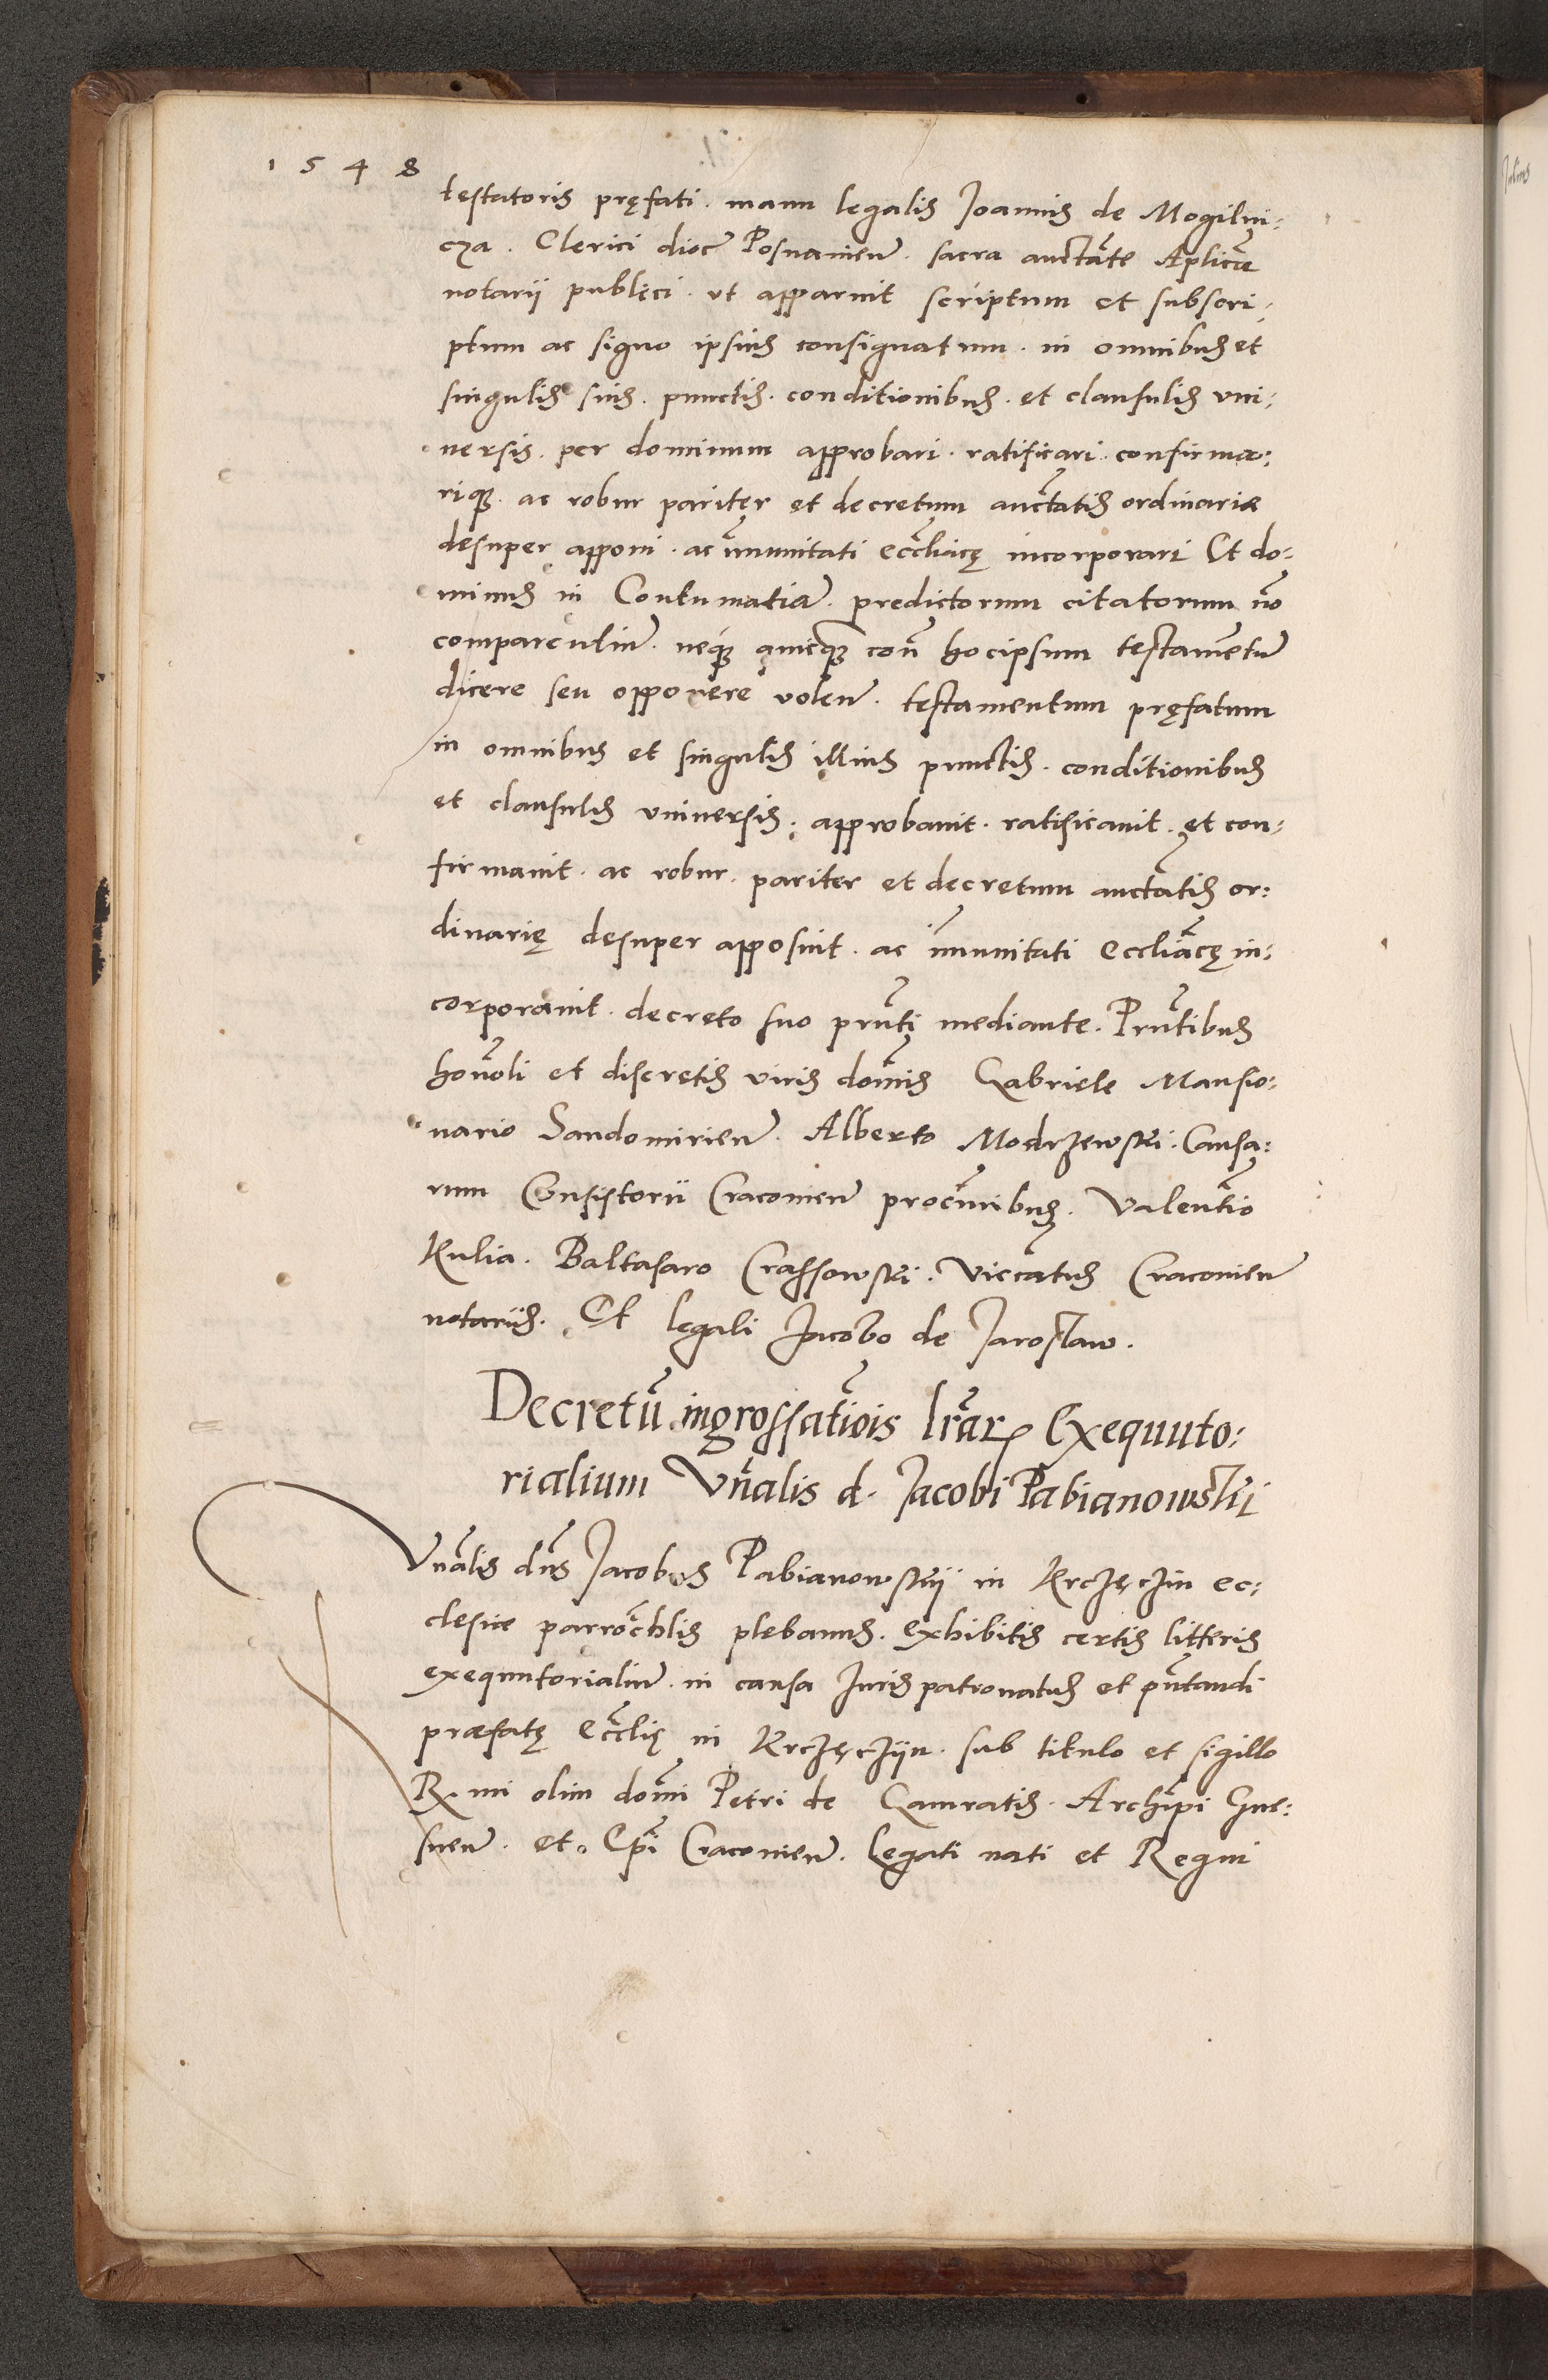 1548
testatoris pręfati . manu legalis Joannis de Mogilni:
cza . Clerici dioc̃ Posnanieñ . sacra auctãte Aplicã
notarij publici . vt apparuit scriptum et subscri:
ptum ac signo ipsius consignatum . in omnibus et
singulis suis . punctis . conditionibus . et clausulis vni:
uersis . per dominum approbari . ratificari . confirma:
riq̃ . ac robur pariter et decretum auctãtis ordinariæ
desuper apponi . ac im̃unitati eccl̃iacę incorporari Et do:
minus in Contumatiã . predictorum citatorum nõ
comparentiũ . neq̃ quicq̃ con̄ hocipsum testamẽtũ
dicere seu opponere voleñ . testamentum pręfatum
in omnibus et singulis illius punctis . conditionibus
et clausulis vniuersis . approbauit . ratificauit . et con:
firmauit . ac robur . pariter et decretum auctãtis or:
dinarię desuper apposuit . ac im̃unitati Eccliãcę in:
corporauit . decreto suo prñti mediante . Prñtibus
honoli et discretis viris dom̃is Gabriele Mansio:
nario Sandomirieñ . Alberto Modrzewski . Causa:
rum Consistorii Cracouieñ procur̃ibus . Valentĩo
Kulia . Baltasaro Crassowski . Viccãtus Cracouieñ
notariis . Et legali Jacobo de Jaroslaw .
Decretũ ingrossatiõis lr̃ar Exequuto:
rialium Vñalis d . Jacobi Pabianowskij
Vnãlis dñs Jacobus Pabianowskij in Krczęczin ec:
clesiæ parrochl̃is plebanus . exhibitis certis litteris
exequutorialiũ . in causa Juris patronatus et pñtandi
præfatę Eccl̃ię in Krczęczijn . sub titulo et sigillo
R . mi olim dom̃i Petri de Gamratis . Archĩpi Gne:
sneñ . et . Ep̃i Cracouieñ . legati nati et Regni